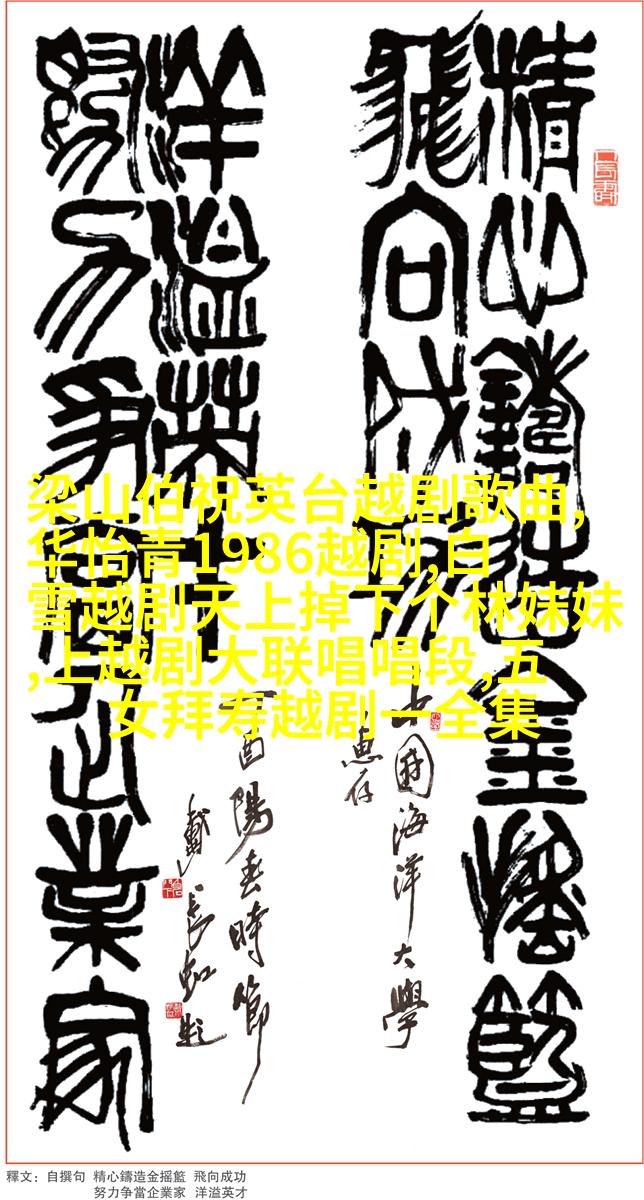 精心鑄造金摇籃
飛向成功
中國海洋大學
惠存
努力争當企業家
洋溢英才
丁酉陽春時節
戴長虹題
梁山伯祝英台越剧歌曲,
华怡青1986越剧,白
雪越剧天上掉下个林妹妹
,上越剧大联唱唱段,五
女拜寿越剧一全集
釋文：自撰句 精心鑄造金摇籃 飛向成功
努力争當企業家 洋溢英才